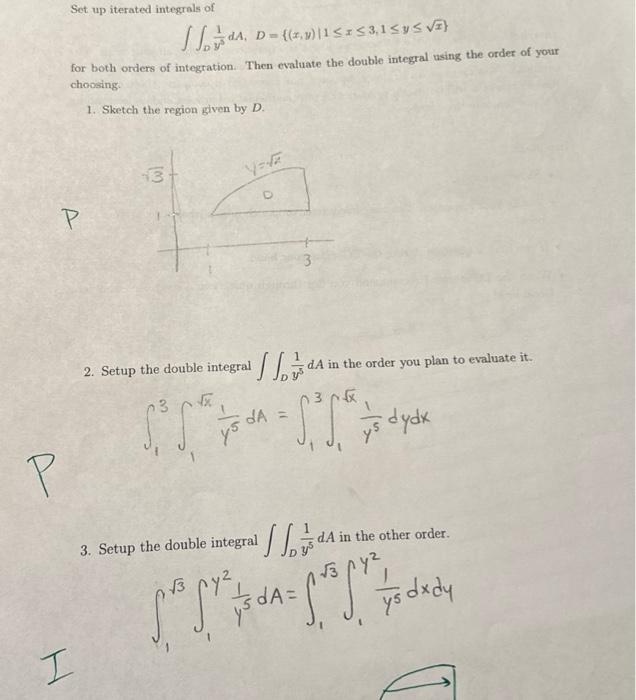 Set up iterated integrals of
∫∫_D 1/y⁵ dA, D = {(x, y) | 1 ≤ x ≤ 3, 1 ≤ y ≤ √x}
for both orders of integration. Then evaluate the double integral using the order of your
choosing.
1. Sketch the region given by D.
y=√x
√3
D
1
P
1 3
2. Setup the double integral ∫∫_D 1/y⁵ dA in the order you plan to evaluate it.
∫₁³ ∫₁^√x 1/y⁵ dA = ∫₁³ ∫₁^√x 1/y⁵ dydx
P
3. Setup the double integral ∫∫_D 1/y⁵ dA in the other order.
∫₁^√3 ∫₁^y² 1/y⁵ dA = ∫₁^√3 ∫₁^y² 1/y⁵ dxdy
I